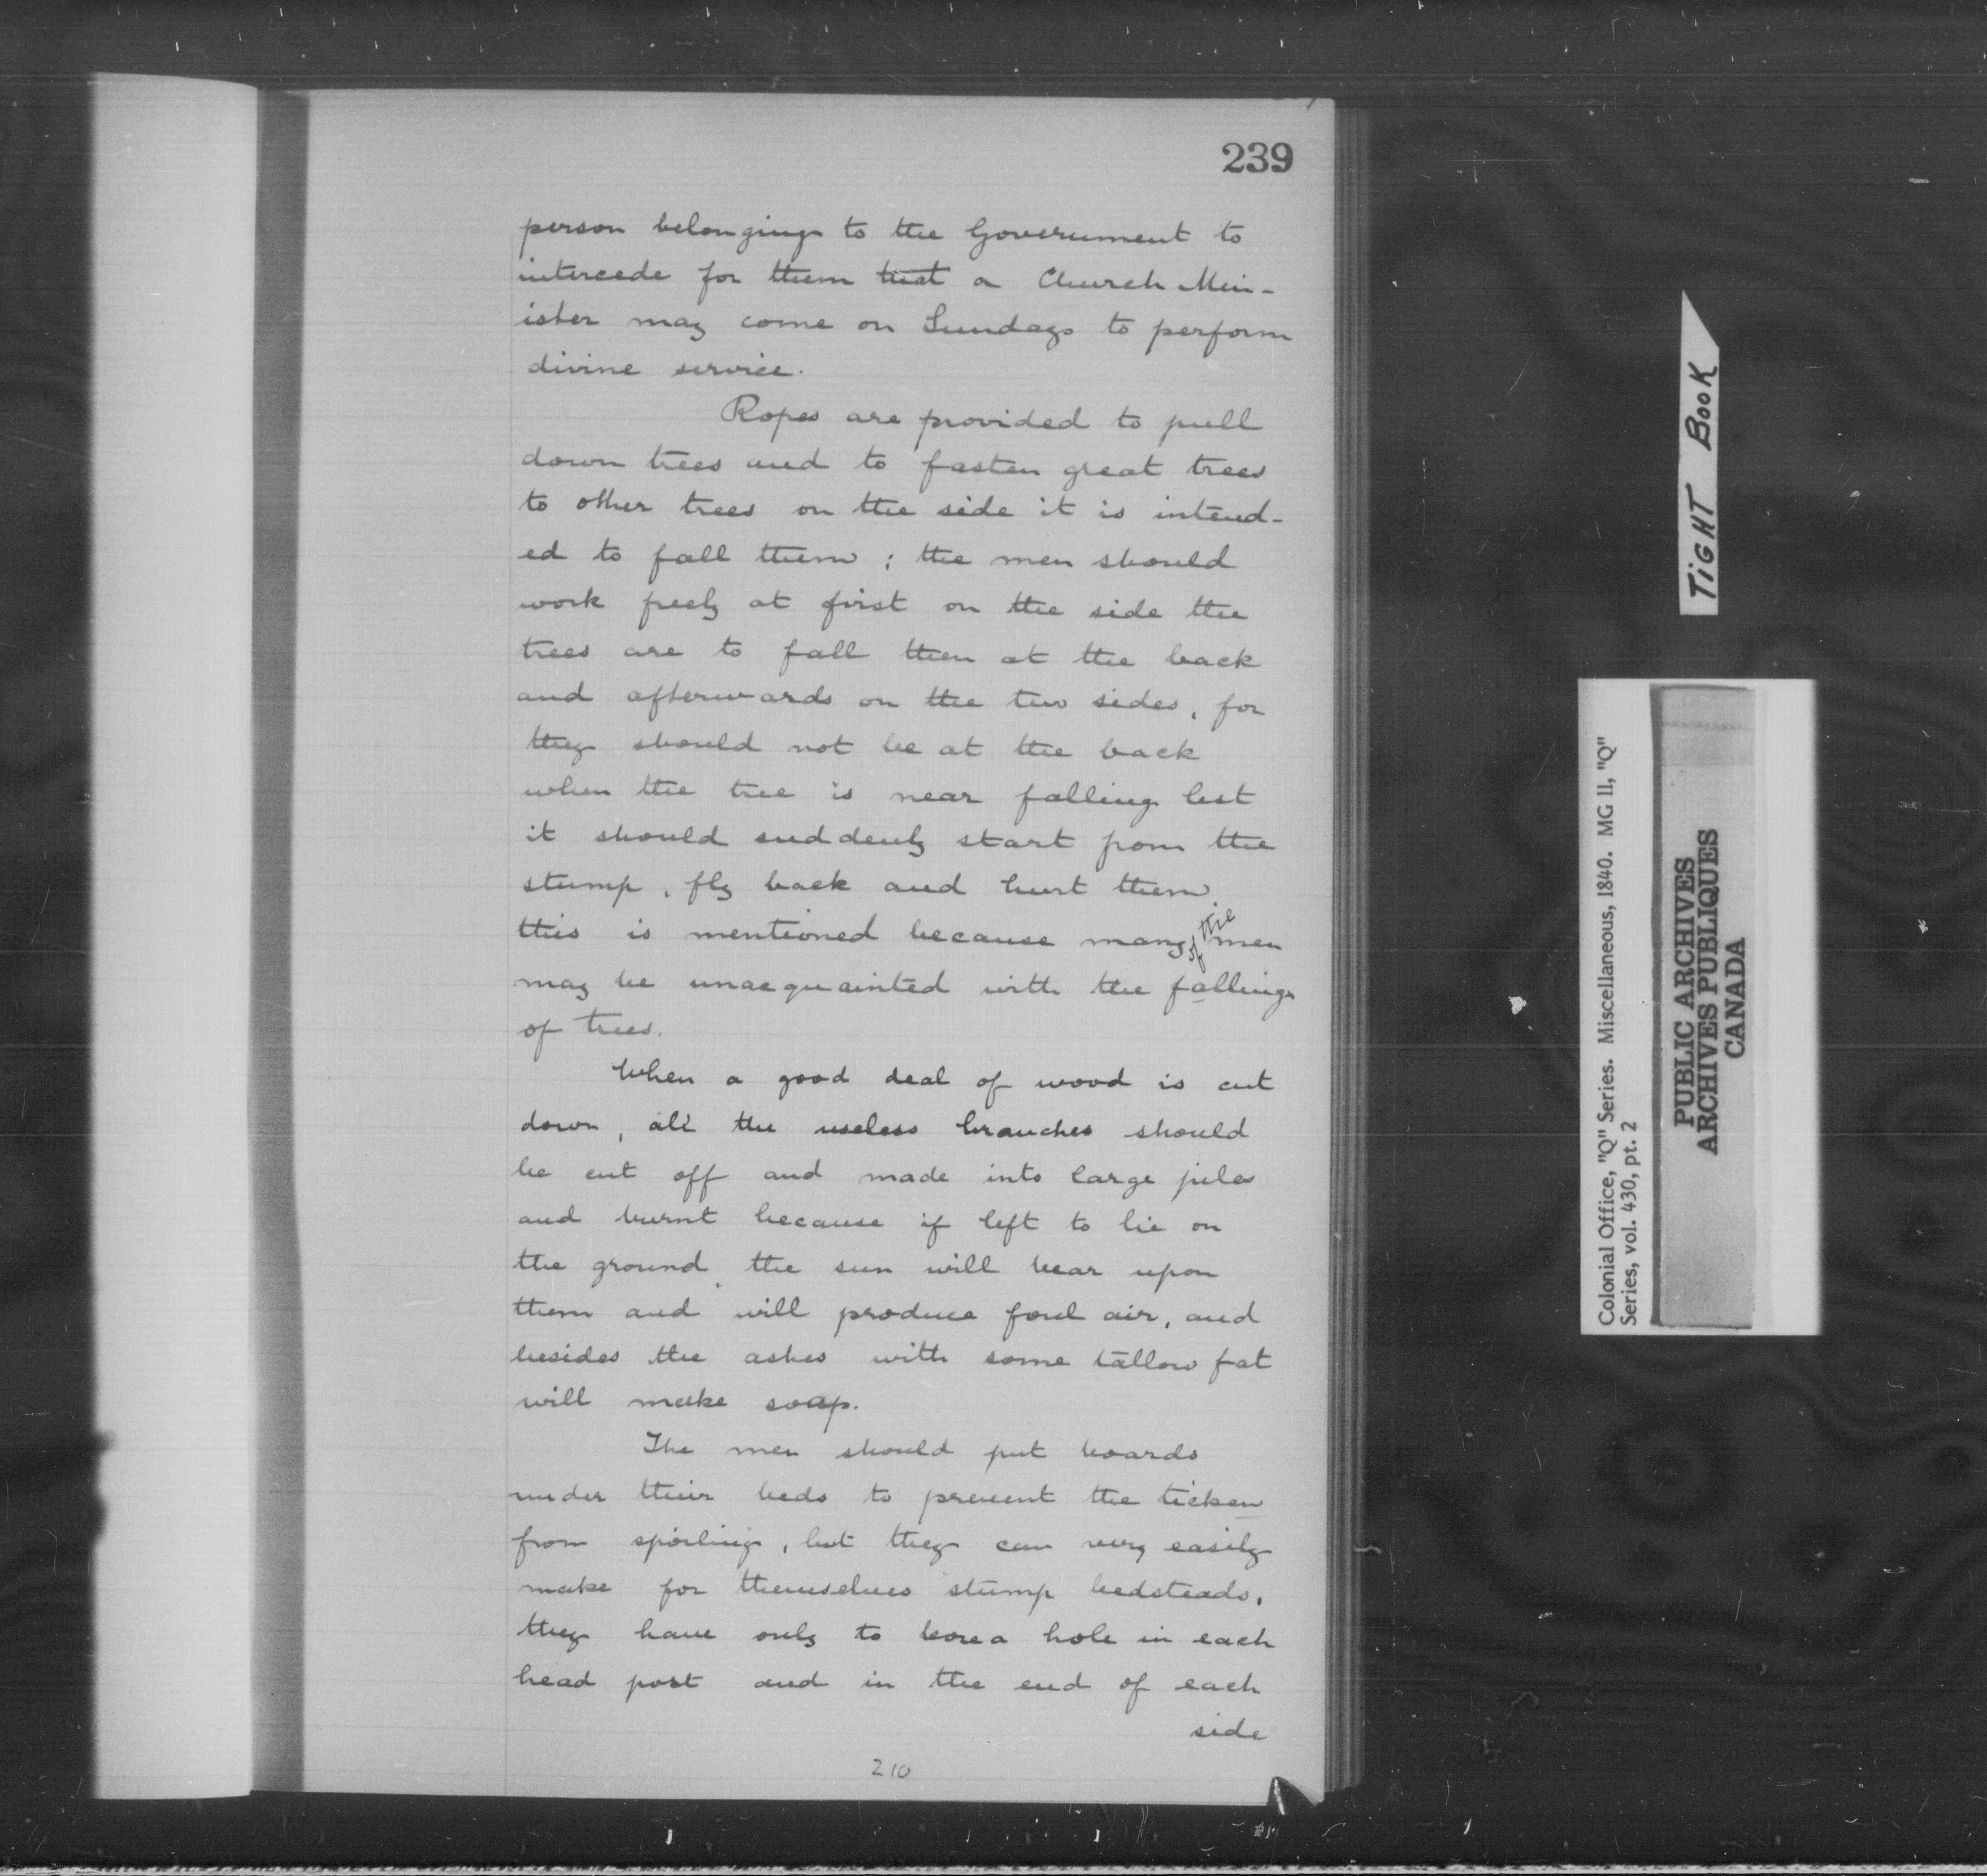 239
person belonging to the Government to
intercede for them that a Church Min-
ister may come on Sundays to perform
divine service.
Ropes are provided to pull
down trees and to fasten great trees
to other trees on the side it is intend-
ed to fall them; the men should
work freely at first on the side the
trees are to fall then at the back
and afterwards on the two sides, for
they should not be at the back
when the tree is near falling lest
it should suddenly start from the
stump, fly back and hurt them.
this is mentioned because many of the men
may be unacquainted with the falling
of trees.
When a good deal of wood is cut
down, all the useless branches should
be cut off and made into large piles
and burnt because if left to lie on
the ground, the sun will bear upon
them and will produce foul air, and
besides the ashes with some tallow fat
will make soap.
The men should put boards
under their beds to prevent the ticken
from spoiling, but they can very easily
make for themselves stump bedsteads,
they have only to bore a hole in each
head post and in the end of each
side
210
TIGHT BOOK
Colonial Office, "Q" Series. Miscellaneous, 1840. MG 11, "Q"
Series, vol. 430, pt. 2
PUBLIC ARCHIVES
ARCHIVES PUBLIQUES
CANADA